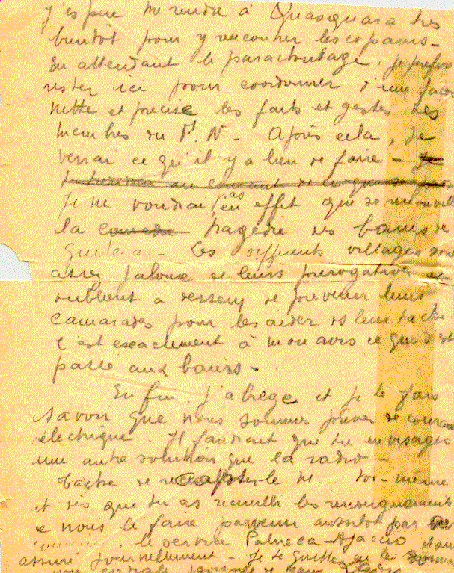 y espère me rendre à Quasquara très
bientôt pour y rencontrer les copains -
En attendant le parachutage, je préfère
rester ici pour coordonner d'une façon
nette et précise les faits et gestes des
membres du F. N - Après cela, je
verrai ce qu'il y a lieu de faire -
Je ne voudrais pas en effet que se renouvelle
la tragédie des bains de
Guitera - Ces différents villages sont
assez jaloux de leurs prérogatives et
oublient à dessein de prévenir leurs
camarades pour les aider ds leur tache.
C'est exactement à mon avis ce qui s'est
passé aux bains -
Enfin j'abrège et je te fais
savoir que nous sommes privés de courant
électrique. Il faudrait que tu envisages
une autre solution que la radio -
Tache de toi-même
et dès que tu as recueilli les renseignements
nous le faire parvenir aussitôt par
le service Palneca-Ajaccio
assuré journellement - Je te quitte